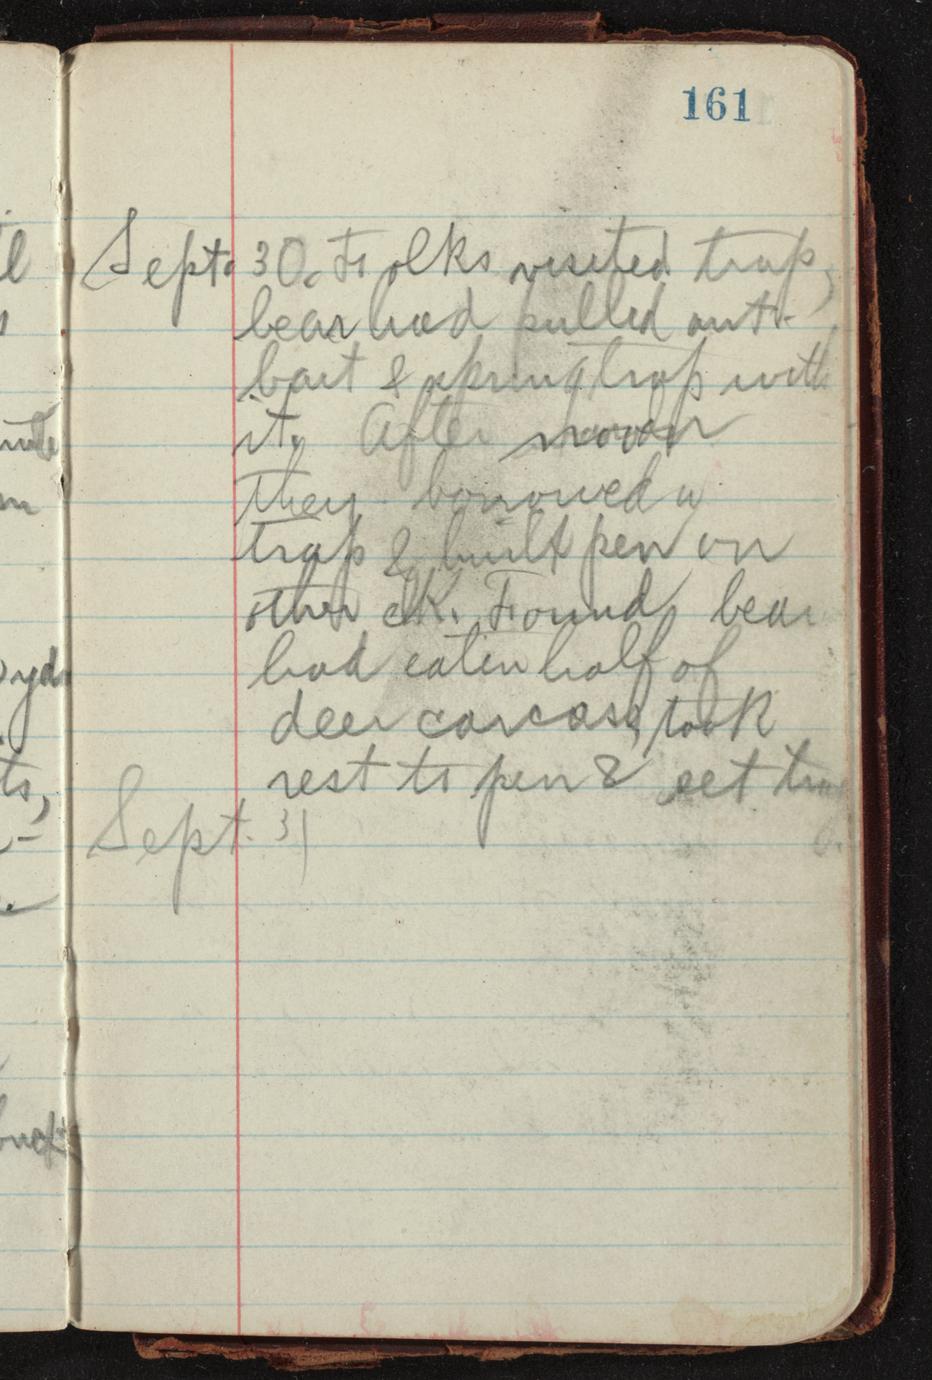 161
Sept. 30. Folks visited trap,
bear had pulled out
bait & sprung trap with
it. After noon
they borrowed a
trap & built pen on
other ck. Found bear
had eaten half of
deer carcass, took
rest to pen & set trap
Sept. 31